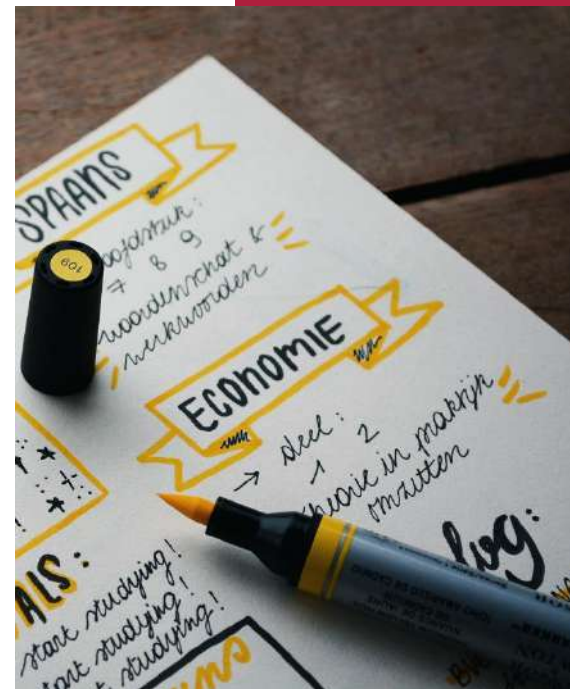 SPAANS
hoofdstuk:
7 8 9
woordenschat &
werkwoorden
ECONOMIE
→ deel:
1 2
theorie in praktijk
omzetten
log:
ALS:
start studying!
start studying!
start studying!
109